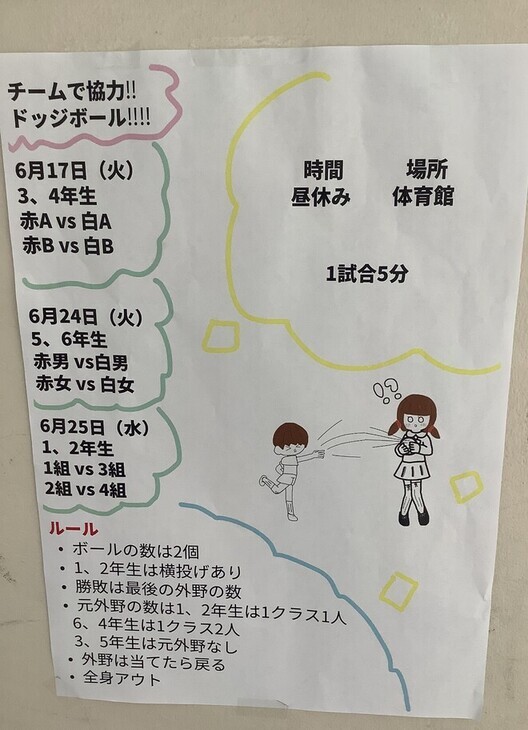 チームで協力!!
ドッジボール!!!!
6月17日（火）
3、4年生
赤A vs 白A
赤B vs 白B
6月24日（火）
5、6年生
赤男 vs白男
赤女 vs 白女
6月25日（水）
1、2年生
1組 vs 3組
2組 vs 4組
時間 場所
昼休み 体育館
1試合5分
ルール
・ボールの数は2個
・1、2年生は横投げあり
・勝敗は最後の外野の数
・元外野の数は1、2年生は1クラス1人
6、4年生は1クラス2人
3、5年生は元外野なし
・外野は当てたら戻る
・全身アウト